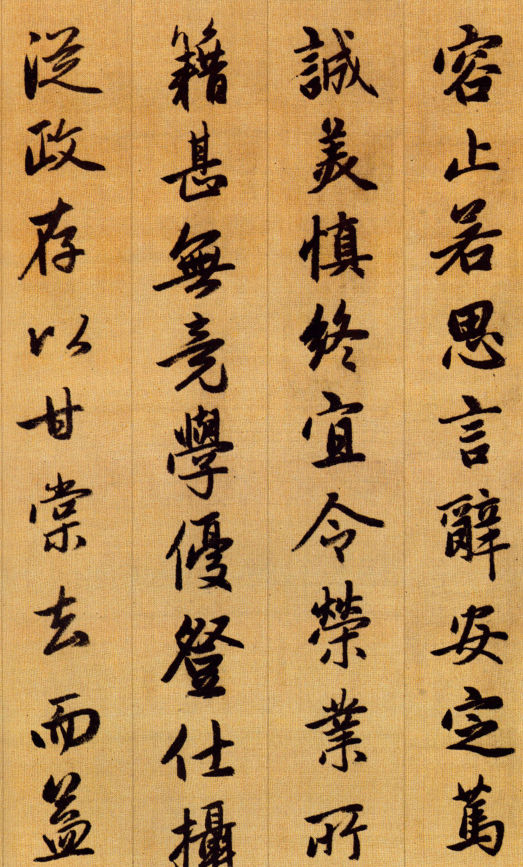 容止若思言辭安定篤
誠美慎終宜令榮業所
籍甚無竟學優登仕攝
從政存以甘棠去而益